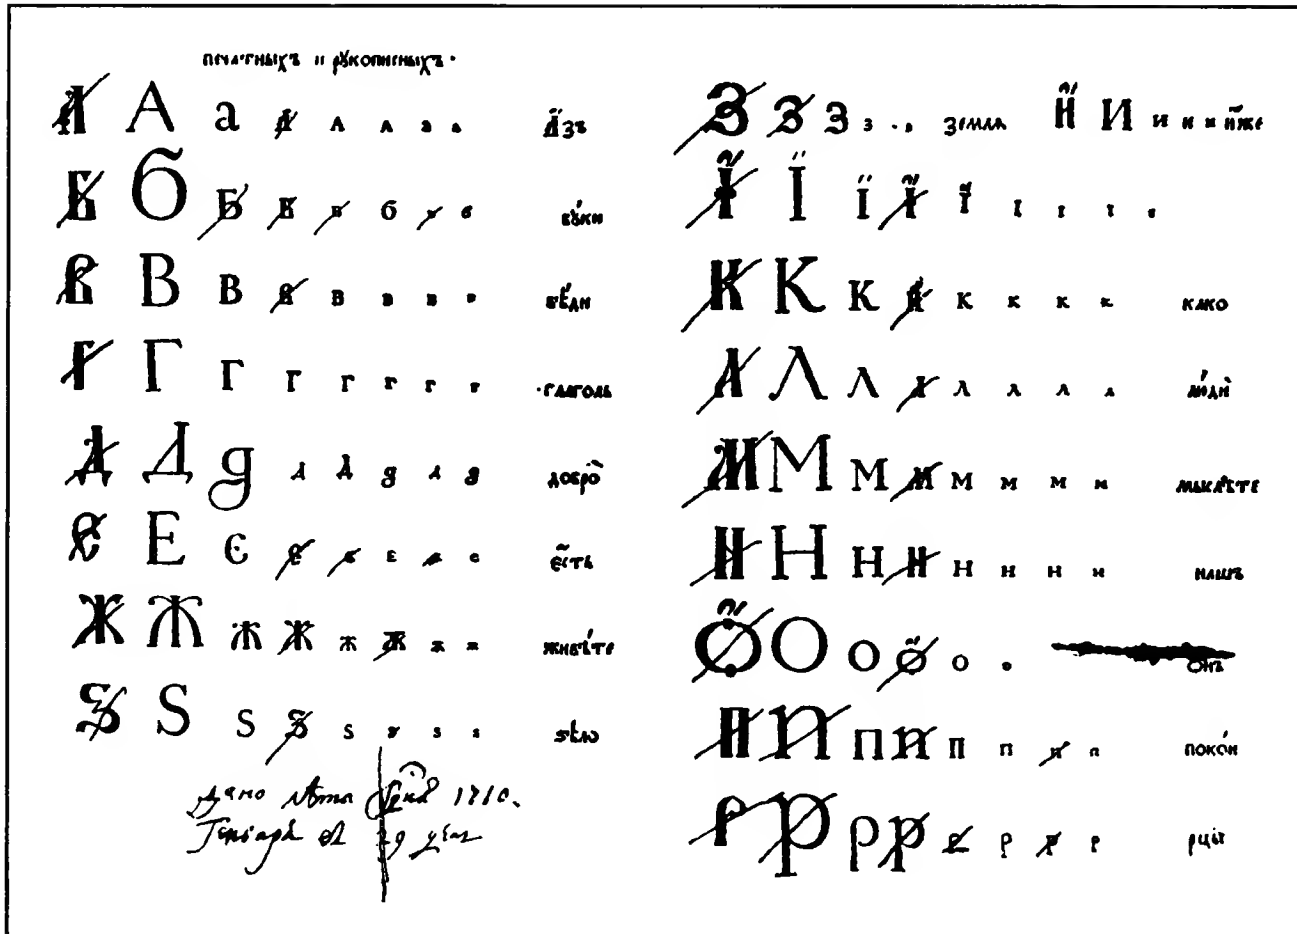 печатныхъ и рукописныхъ.
А А а А А А а а а́зъ
Б б Б Б в б б б бу́ки
В В в В в в в в вѣ́ди
Г Г г г г г г г глаголь
Д Д д д д д д д добро̀
Є Е є є є є є є є҆сть
Ж Ж ж ж ж ж ж ж живѣ́те
Ѕ Ѕ ѕ ѕ ѕ ѕ ѕ ѕ ѕѣло̀
дано лѣта 1710.
Генваря 29 дня
З З з з земля И И и и и и҆́же
Ї Ї ї ї ї ї ї ї
К К к к к к к к како
Л Л л л л л л л лю́дїѐ
М М м м м м м м мыслѣте
Н Н н н н н н н нашъ
О О о о о о онъ
П П п п п п п п поко́и
Р Р р р р р р р рцы̀